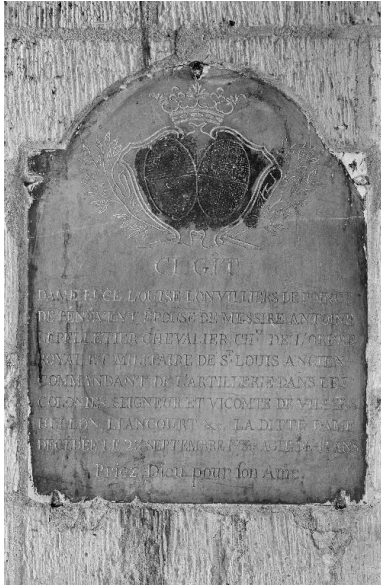 CI GIT
DAME LUCE LOUISE LONVILLIERS LE
DE BENOUVENT EPOUSE DE MESSIRE ANTOINE
LEPELLETIER CHEVALIER CH.ER DE L'ORDRE
ROYAL ET MILITAIRE DE S.T LOUIS ANCIEN
COMMANDANT DE L'ARTILLERIE DANS LES
COLONIES SEIGNEUR ET VICOMTE DE
LIANCOURT &. LA DITTE DAME
DECEDEE LE SEPTEMBRE AGEE DE ANS
Priéz, Dieu pour son Ame.